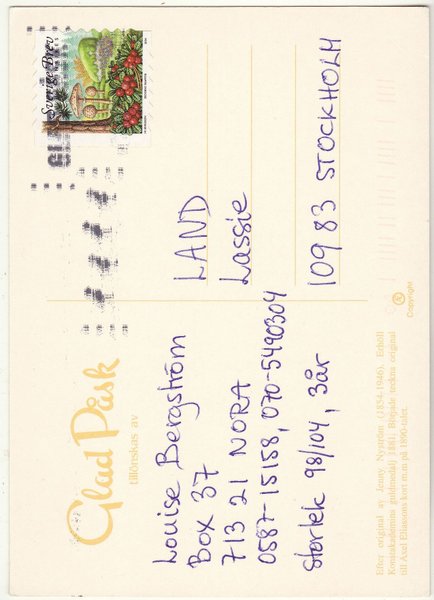 Glad Påsk
tillönskas av
Louise Bergström
Box 37
713 21 NORA
0587-15158, 070-5490304
Storlek 98/104, 3år
Efter original av Jenny Nyström (1854-1946). Erhöll
Konstakademins guldmedalj 1881. Började teckna original
till Axel Eliassons kort m.m på 1890-talet.
Sverige Brev
LAND
Lassie
109 83 STOCKHOLM
Copyright